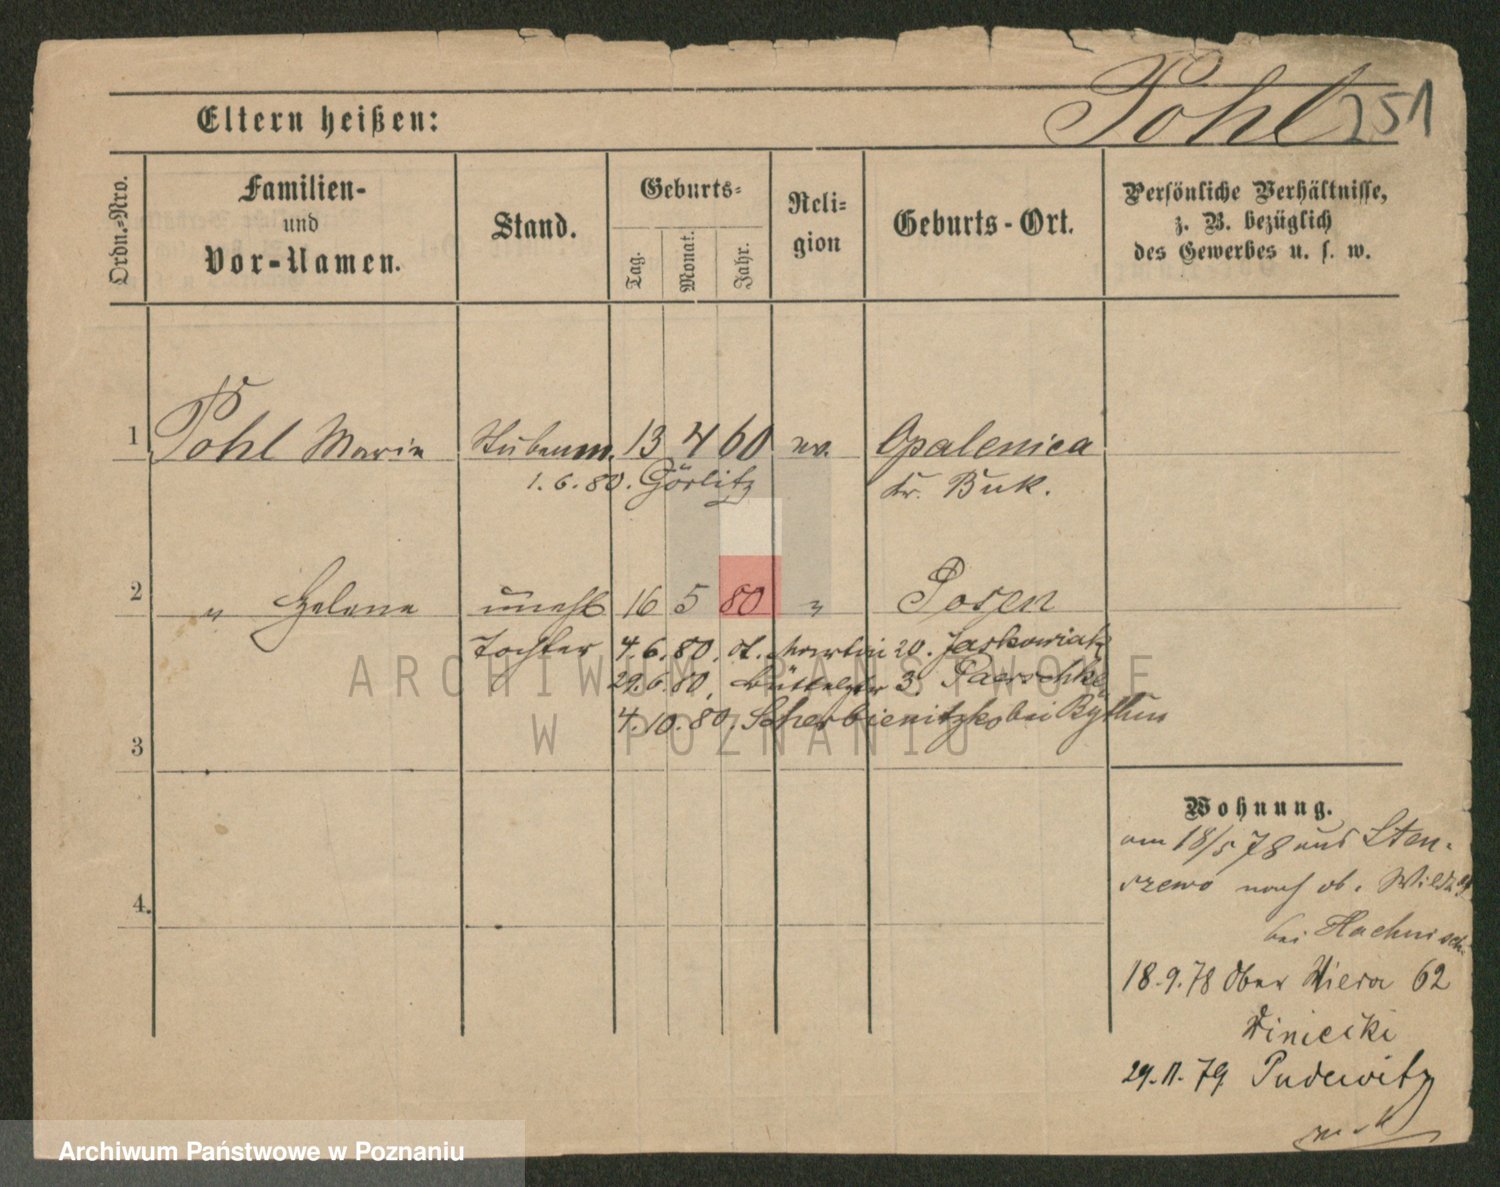 Pohl 251
Eltern heißen:
Ordn.-Nro.
Familien-
und
Vor-Namen.
Stand.
Geburts-
Tag.
Monat.
Jahr.
Reli-
gion
Geburts-Ort.
Persönliche Verhältnisse,
z. B. bezüglich
des Gewerbes u. s. w.
1 Pohl Marie Stubenm. 13 4 60 ev. Opalenica
1.6.80. Görlitz Kr. Buk.
2 " Helene unehl 16 5 80 " Posen
Tochter 4.6.80. St. Martin 20. Jaskowiak
29.6.80, Büttelstr 3.
4.10.80. bei Bythin
ARCHIWUM PAŃSTWOWE
W POZNANIU
3
4.
Wohnung.
am 18/5 78 aus Sten-
szewo nach ob. Wilda
bei
18.9.78 Ober 62
Winiecki
29.11.79 Pudewitz
Archiwum Państwowe w Poznaniu